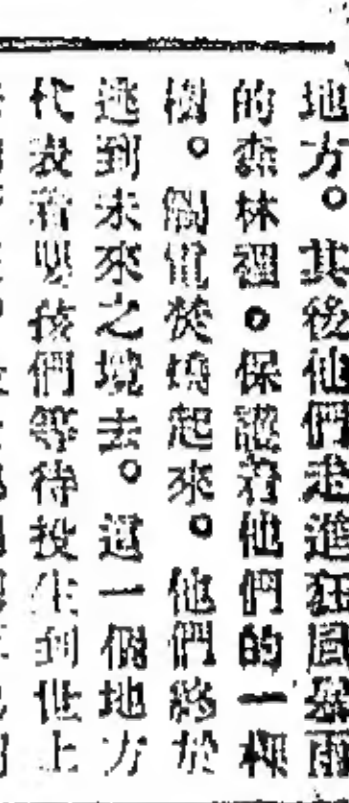 地方。其後他們走進狂風暴雨
的森林裡。保護着他們的一棵
樹。觸電焚燒起來。他們終於
逃到未來之境去。這一個地方
代表着嬰孩們等待投生到世上